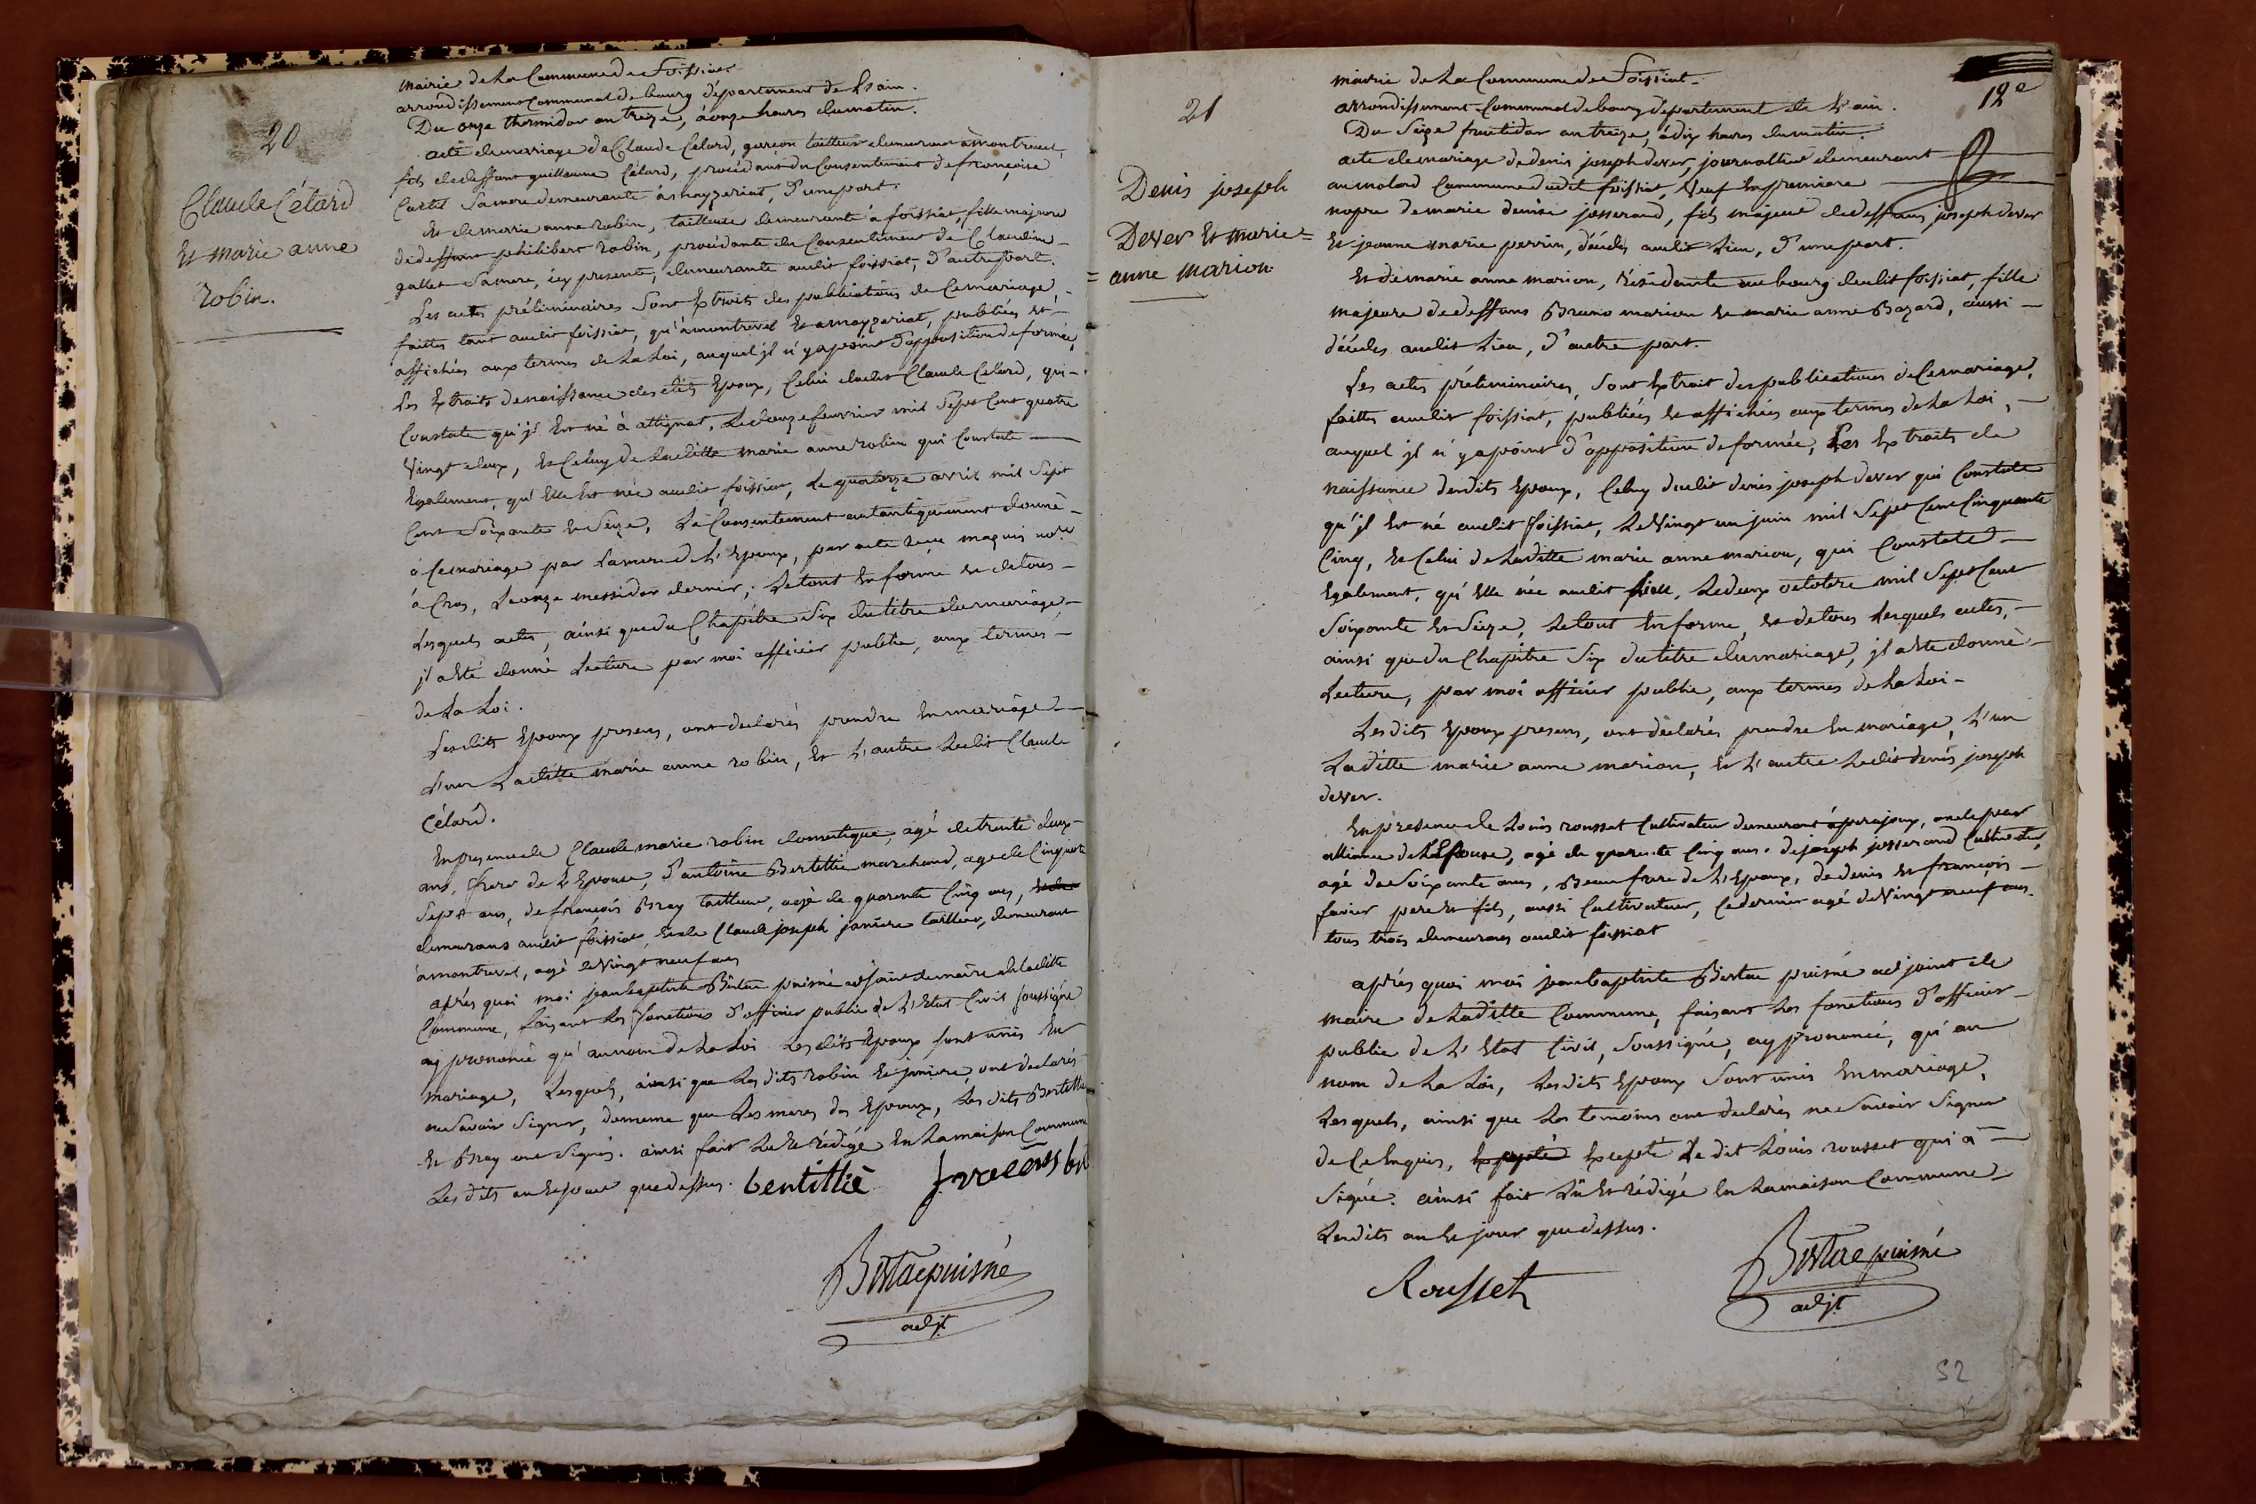 20
Claude Célard
Et marie anne
robin.
mairie de La Commune de Foissiat
arrondissement Communal de bourg département de L'ain.
Du onze thermidor an treize, à onze heures du matin.
acte de mariage de Claude Célard, garçon tailleur demeurant à montrevel,
fils de deffunt guillaume Célard, procédant du Consentement de françoise
Sa mere demeurante à mayzeriat, D'une part.
Et de marie anne robin, tailleuse demeurante à foissiat, fille majeure
de deffunt philibert robin, procédante du Consentement de Claudine
gallet Sa mere, icy presente, demeurante audit foissiat, D'autre part.
Les actes préliminaires Sont Extraits des publications de Ce mariage,
faittes tant audit foissiat, qu'à montrevel Et a mayzeriat, publiées et
affichées aux termes de La Loi, auquel jl n'y a point D'opposition de formée,
Les Extraits de naissance des dits Epoux, Celui dudit Claude Célard, qui
Constate qu'jl Est né à attignat, Le douze fevrier mil Sept Cent quatre
Vingt deux, Et Celuy de Laditte marie anne robin qui Constate
Egalement, qu'Elle Est née audit foissiat, Le quatorze avril mil Sept
Cent Soixante Et Seize, Le Consentement autantiquement donné
à Ce mariage par La mere de L'Epoux, par acte reçu maguin nore
à Cras, Le onze messidor dernier; Le tout En forme Et de tous
Lesquels actes, ainsi que du Chapitre Six du titre du mariage,
jl a Eté donné Lecture par moi officier public, aux termes
de La Loi.
Lesdits Epoux presens, ont déclarés prendre En mariage
L'un Laditte marie anne robin, Et L'autre Ledit Claude
Célard.
En presence de Claude marie robin domestique, agé de trente deux
ans, frere de L'Epouse, D'antoine Bertillié marchand, agé de Cinquante
Sept ans, de françois Bray tailleur, agé de quarante Cinq ans,
demeurans audit foissiat, Et de Claude joseph janiere tailleur, demeurant
à montrevel, agé de Vingt neuf ans
après quoi moi jean baptiste Bertae puisné adjoint de maire de Laditte
Commune, faisant Les fonctions D'officier public de L'Etat Civil Soussigné
ay prononcé qu'au nom de La Loi Les dits Epoux Sont unis En
mariage, Lesquels, ainsi que Les dits robin Et janiere, ont declarés
ne Savoir Signer, de meme que Les meres des Epoux, Les dits Bertillié
Et Bray ont Signés. ainsi fait Lu Et rédigé En La maison Commune
Les dits an Et jour que dessus. bentillié
Bertae puisné
adjt
21
Denis joseph
Dever Et marie=
=anne marion
12e
mairie de La Commune de Foissiat.
arrondissement Communal de bourg departement de L'ain.
Du Seize fructidor an treize, à dix heures du matin.
acte de mariage de denis joseph dever, journallier demeurant
au molard Commune dudit foissiat, Veuf En premiere
nopce de marie denise josserand, fils majeur de deffunts joseph dever
Et jeanne marie perrin, décédés audit Lieu, D'une part.
Et de marie anne marion, résidente au bourg dudit foissiat, fille
majeure de deffuns Bruno marion Et marie anne Bozard, aussi
décédés audit Lieu, D'autre part.
Les actes préliminaires, Sont Extrait des publications de Ce mariage,
faittes audit foissiat, publiées Et affichées aux termes de La Loi,
auquel jl n'y a point d'opposition de formée, Les Extraits de
naissance desdits Epoux, Celuy dudit denis joseph dever qui Constate
qu'jl Est né audit foissiat, Le Vingt un juin mil Sept Cent Cinquante
Cinq, Et Celui de Laditte marie anne marion, qui Constate
Egalement, qu'Elle née audit Lieu, Le deux octobre mil Sept Cent
Soixante Et Seize, Le tout En forme, Et de tous Lesquels actes,
ainsi que du Chapitre Six du titre du mariage, jl a Eté donné
Lecture, par moi officier public, aux termes de La Loi
Lesdits Epoux presens, ont déclarés prendre En mariage, L'un
Laditte marie anne marion, Et L'autre Ledit denis joseph
dever.
En presence de Louis rousset Cultivateur demeurant à perajoux, oncle par
alliance de L'Epouse, agé de quarante Cinq ans. de joseph josserand Cultivateur,
agé de Soixante ans, Beau frere de L'Epoux, de denis Et françois
favier pere Et fils, aussi Cultivateur, Ce dernier agé de Vingt neuf ans.
tous trois demeurans audit foissiat
après quoi moi jean baptiste Bertae puisné adjoint de
maire de Laditte Commune, faisant Les fonctions D'officier
public de L'Etat Civil, Soussigné, ay prononcé, qu'au
nom de La Loi, Lesdits Epoux Sont unis En mariage,
Lesquels, ainsi que Les temoins ont declarés ne Savoir Signer
de Ce Enquis, Excepté Excepté Le dit Louis rousset qui a
Signé. ainsi fait Lu Et rédigé En La maison Commune
Lesdits an Et jour que dessus.
Rousset
Bertae puisné
adjt
52